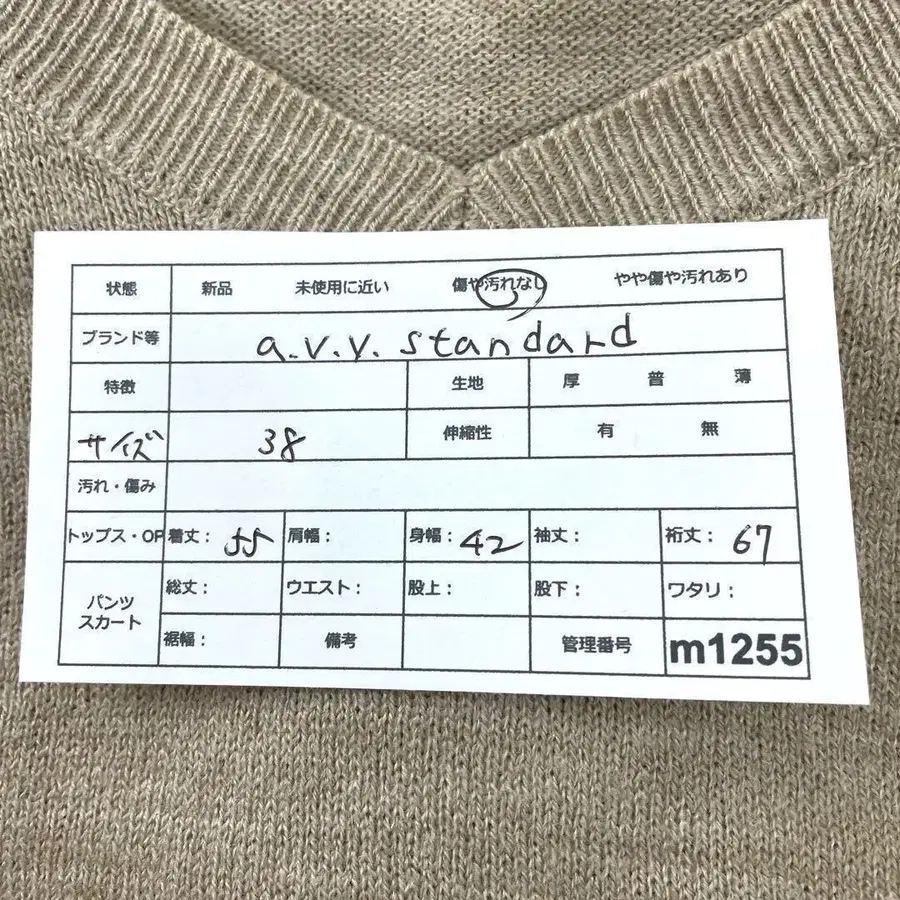 状態 新品 未使用に近い 傷や汚れなし やや傷や汚れあり
ブランド等 a.v.v. standard
特徴 生地 厚 普 薄
サイズ 38 伸縮性 有 無
汚れ・傷み
トップス・OP 着丈: 55 肩幅: 身幅: 42 袖丈: 裄丈: 67
パンツ スカート 総丈: ウエスト: 股上: 股下: ワタリ:
裾幅: 備考 管理番号 m1255